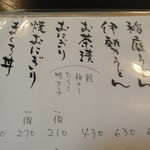 稲庭うどん
伊勢うどん
お茶漬
鮭
梅干し
たらこ
明太子
おにぎり
焼おにぎり
まぐろ丼
一個
210
一個
270
430
630